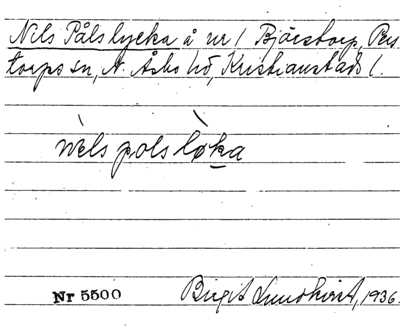 Nils Påls lycka å nr 1 Bjärstorp, Pers
torps sn, N. Åsbo hd, Kristianstads l.
nìls pols lø̀ka
Nr 5500 Birgit Lundkvist, 1936.